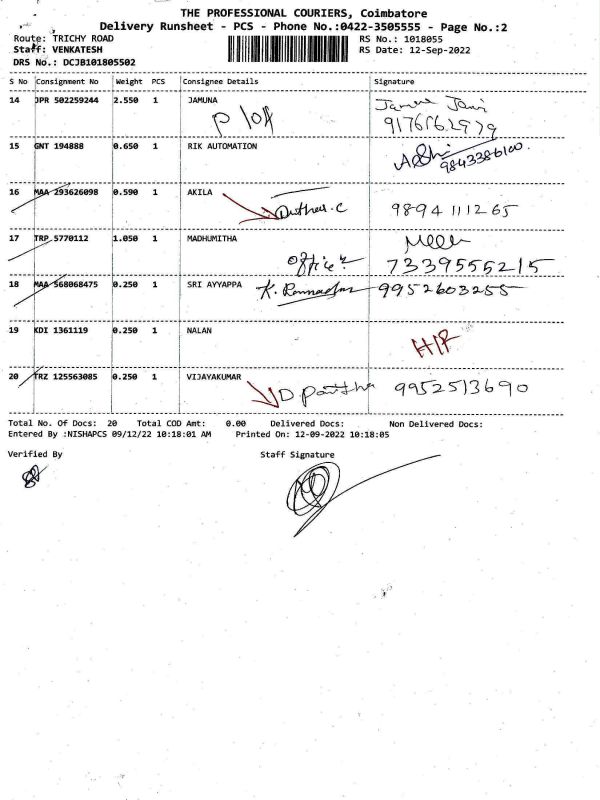 THE PROFESSIONAL COURIERS, Coimbatore
Delivery Runsheet - PCS - Phone No.:0422-3505555 - Page No.:2
Route: TRICHY ROAD RS No.: 1018055
Staff: VENKATESH RS Date: 12-Sep-2022
DRS No.: DCJB101805502
S No Consignment No Weight PCS Consignee Details Signature
14 JPR 502259244 2.550 1 JAMUNA
15 GNT 194888 0.650 1 RIK AUTOMATION
9843386100
16 MAA 293626098 0.590 1 AKILA
9894111265
17 TRP 5770112 1.050 1 MADHUMITHA
office
7339555215
18 MAA 568068475 0.250 1 SRI AYYAPPA
9952603255
19 KDI 1361119 0.250 1 NALAN
20 TRZ 125563085 0.250 1 VIJAYAKUMAR
9952513690
Total No. Of Docs: 20 Total COD Amt: 0.00 Delivered Docs: Non Delivered Docs:
Entered By :NISHAPCS 09/12/22 10:18:01 AM Printed On: 12-09-2022 10:18:05
Verified By Staff Signature